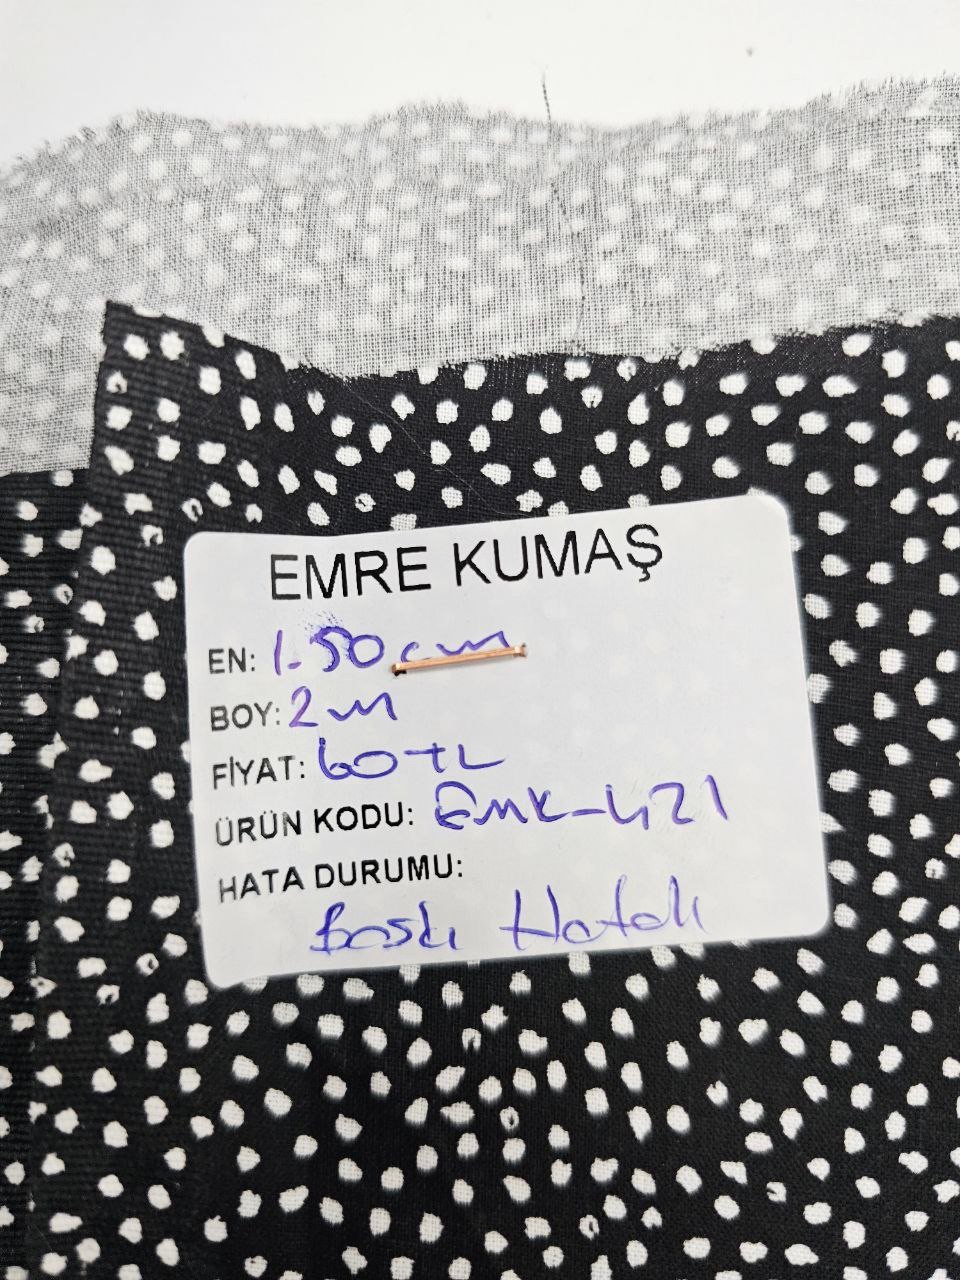 EMRE KUMAŞ
EN: 1.50 cm
BOY: 2 m
FİYAT: 60 TL
ÜRÜN KODU: EMK-421
HATA DURUMU:
Baskı Hatalı